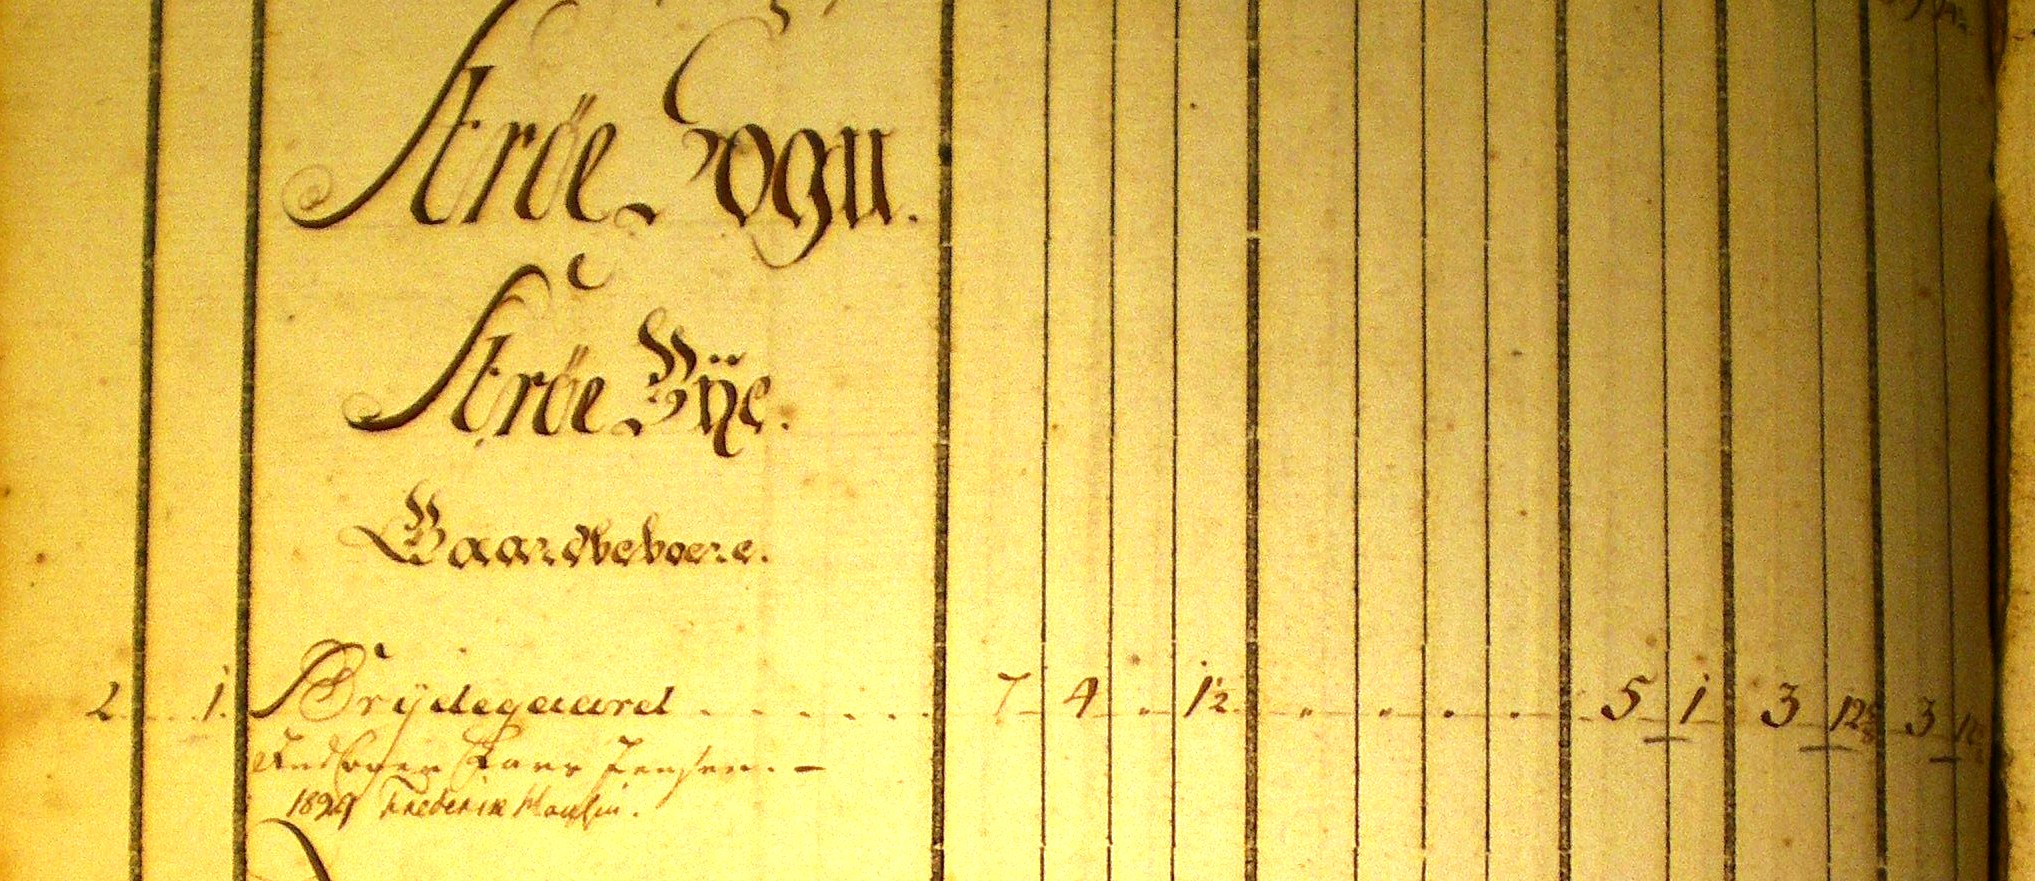 Strøe Sogn.
Strøe Bÿe.
Gaardbeboere.
2 1. Brÿdegaard 7 4 " 1½ " " " " 5 1 3 12 3
Jensen. —
1829 Frederik Hansen.